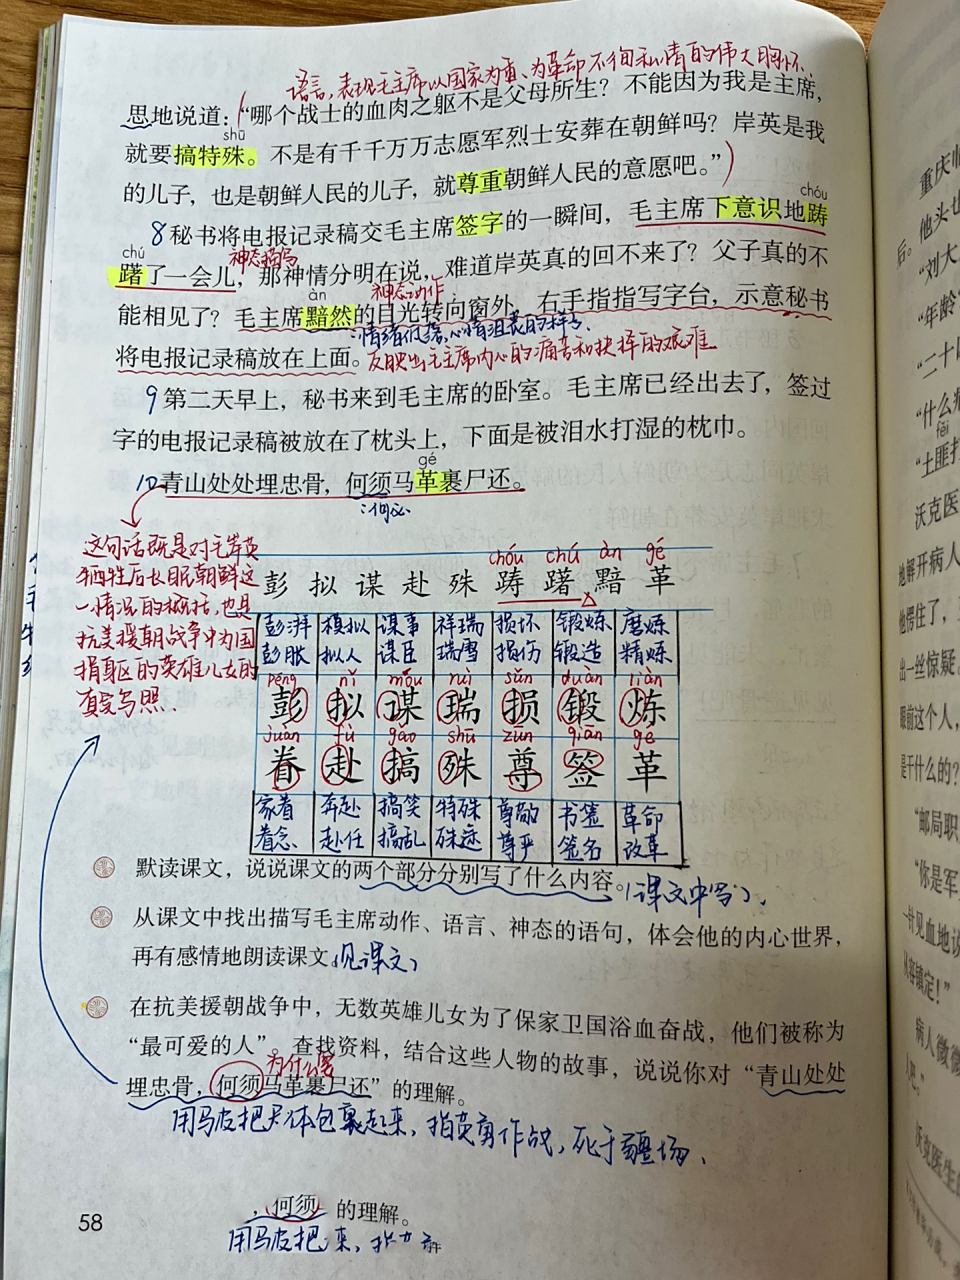 语言,表现毛主席以国家为重、为革命不徇私情的伟大胸怀.
思地说道:“哪个战士的血肉之躯不是父母所生?不能因为我是主席,
shū
就要搞特殊。不是有千千万万志愿军烈士安葬在朝鲜吗?岸英是我
的儿子,也是朝鲜人民的儿子,就尊重朝鲜人民的意愿吧。”)
chóu
8秘书将电报记录稿交毛主席签字的一瞬间,毛主席下意识地踌
chú
神态描写
躇了一会儿,那神情分明在说,难道岸英真的回不来了?父子真的不
àn
神态动作
能相见了?毛主席黯然的目光转向窗外,右手指指写字台,示意秘书
:情绪低落,心情沮丧的样子.
将电报记录稿放在上面。反映出毛主席内心的痛苦和抉择的艰难
9第二天早上,秘书来到毛主席的卧室。毛主席已经出去了,签过
字的电报记录稿被放在了枕头上,下面是被泪水打湿的枕巾。
gé
10青山处处埋忠骨,何须马革裹尸还。
:何必
这句话既是对毛岸英
牺牲后长眠朝鲜这
一情况的概括,也是
抗美援朝战争中为国
捐躯的英雄儿女的
真实写照.
chóu chú àn gé
彭 拟 谋 赴 殊 踌 躇 黯 革
彭湃 模拟 谋事 祥瑞 损坏 锻炼 磨炼
彭胀 拟人 谋臣 瑞雪 损伤 锻造 精炼
péng nǐ móu ruì sǔn duàn liàn
彭 拟 谋 瑞 损 锻 炼
juàn fù gǎo shū zūn qiān gé
眷 赴 搞 殊 尊 签 革
家眷 奔赴 搞笑 特殊 尊敬 书签 革命
眷念 赴任 搞乱 殊途 尊严 签名 改革
默读课文,说说课文的两个部分分别写了什么内容。(课文中写).
从课文中找出描写毛主席动作、语言、神态的语句,体会他的内心世界,
再有感情地朗读课文。(见课文)
在抗美援朝战争中,无数英雄儿女为了保家卫国浴血奋战,他们被称为
“最可爱的人”。查找资料,结合这些人物的故事,说说你对“青山处处
为什么要
埋忠骨,何须马革裹尸还”的理解。
用马皮把尸体包裹起来,指英勇作战,死于疆场.
,何须 的理解。
用马皮把 来,
58
重庆临
他头也
后。
“刘大
“年龄
“二十四
“什么病
fěi
“土匪打
沃克医
地解开病人
他愣住了,
出一丝惊疑。
眼前这个人,
是干什么的?
“邮局职
“你是军
一针见血地说
从容镇定!”
病人微微
人吧。”
沃克医生的